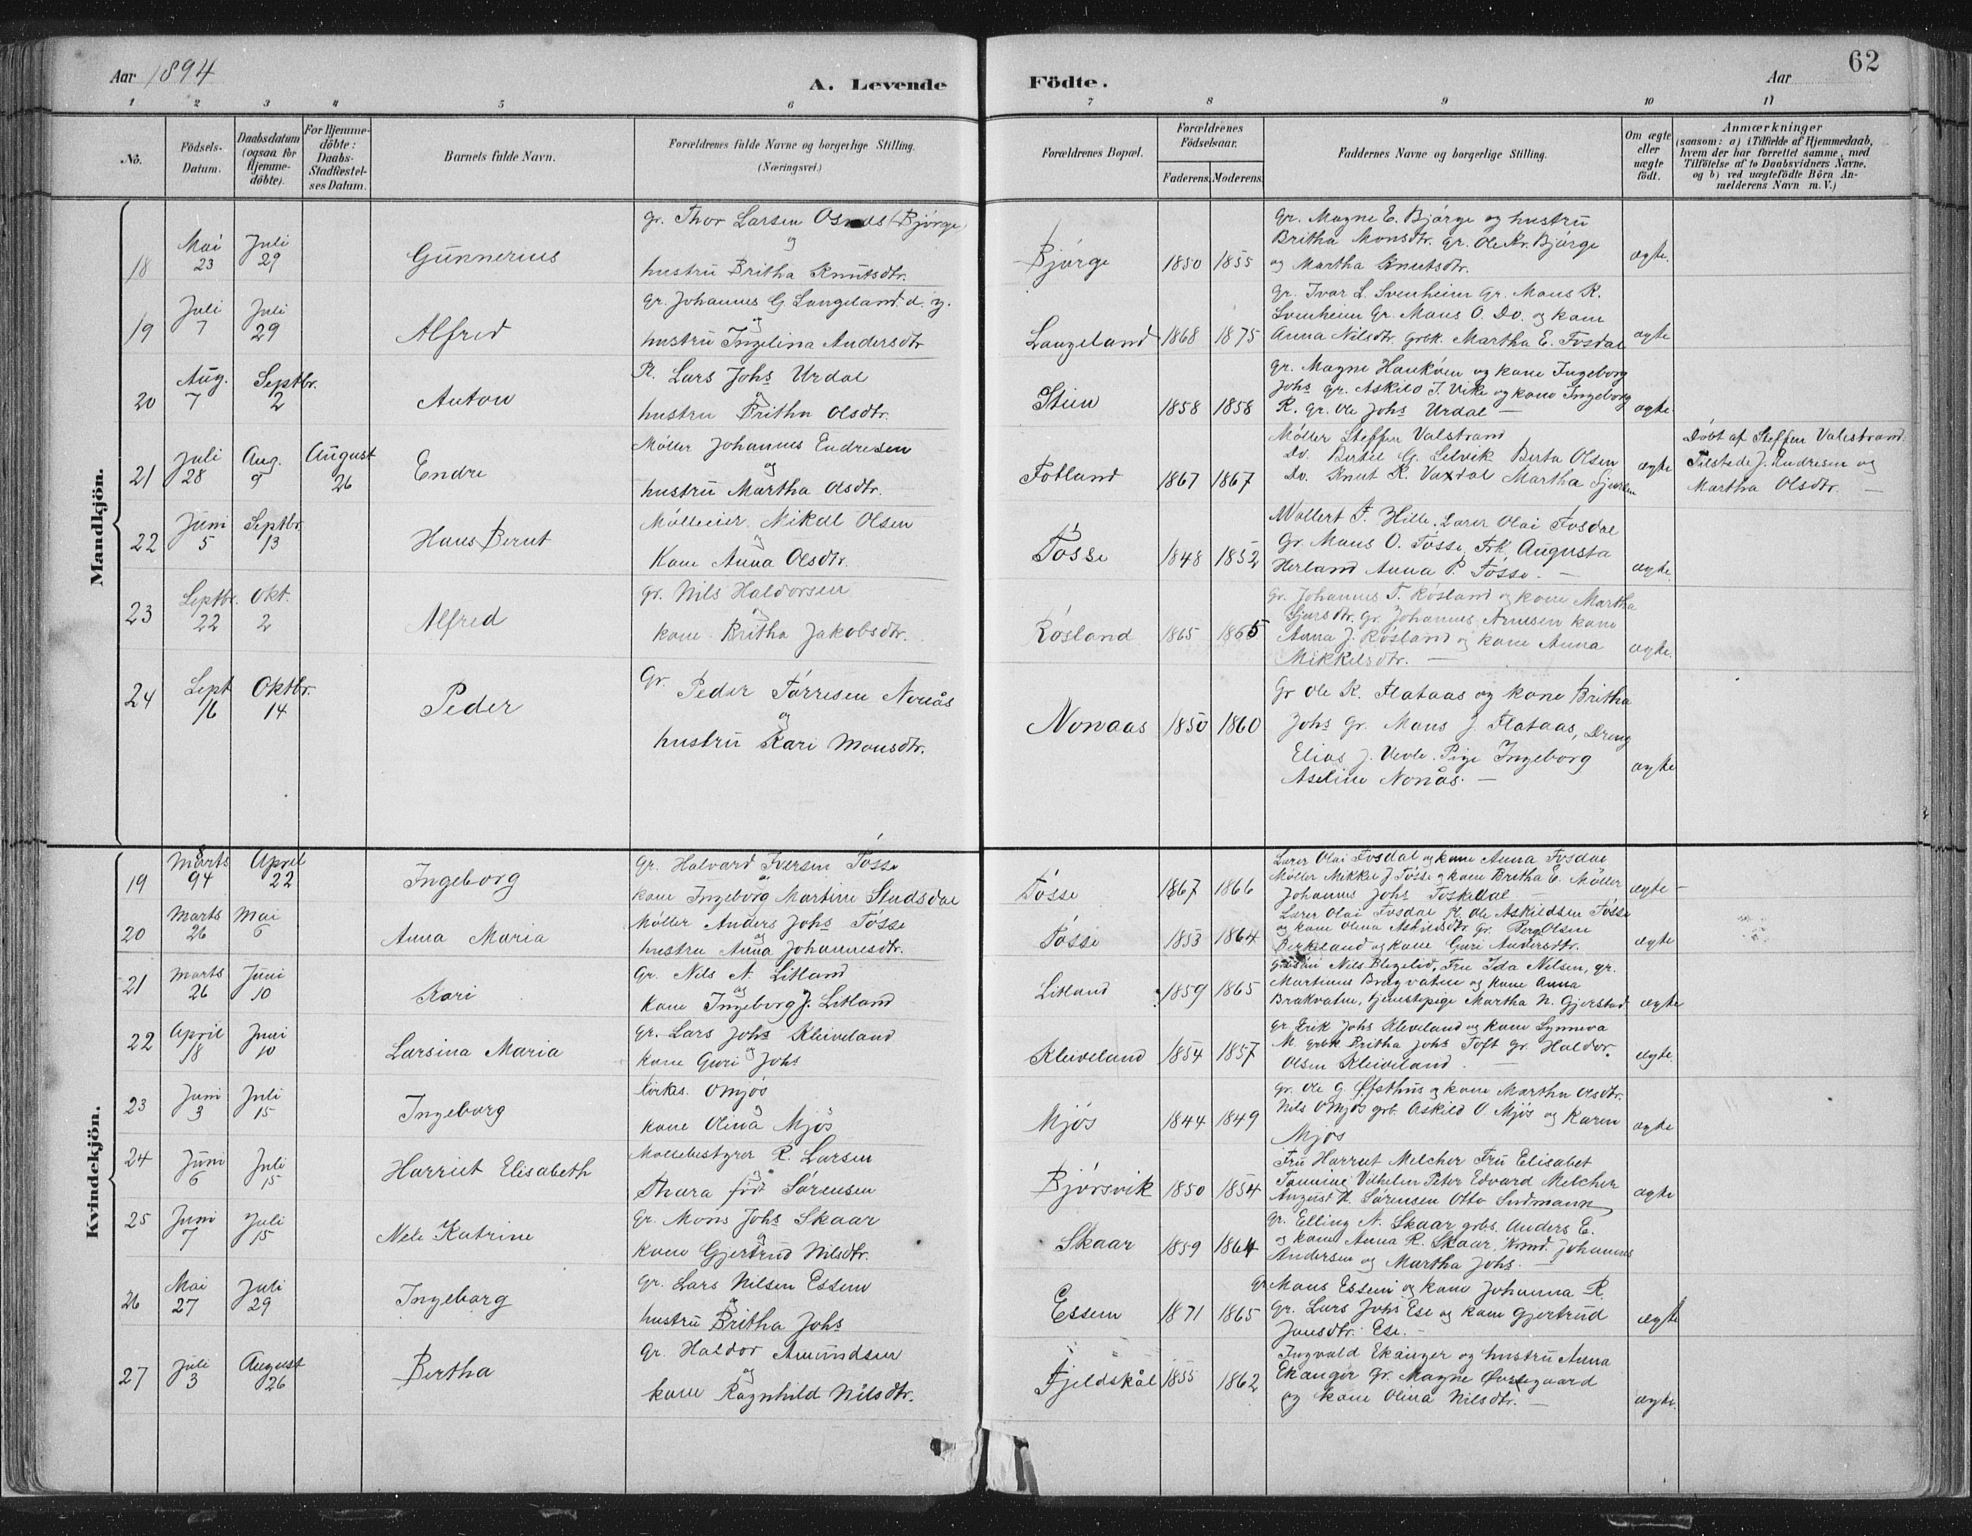 Aar 1894
A. Levende Födte.
Aar
62
1 2 3 4 5 6 7 8 9 10 11
No.
Födsels-Datum.
Daabsdatum (ogsaa for Hjemme-döbte).
For Hjemme-döbte: Daabs-Stadfæstel-ses Datum.
Barnets fulde Navn.
Forældrenes fulde Navne og borgerlige Stilling.
(Næringsvei.)
Forældrenes Bopæl.
Forældrenes Födselsaar.
Faderens. Moderens.
Faddernes Navne og borgerlige Stilling.
Om ægte eller uægte födt.
Anmærkninger
(saasom: a) i Tilfælde af Hjemmedaab, hvem der har forrettet samme, med Tilföielse af to Daabsvidners Navne, og b) ved uægtefödte Börn An-melderens Navn m. V.)
Mandkjön.
18 Mai 23 Juli 29 Gunnerius
gr. Thor Larsen Osnes (Bjørge)
og
hustru Britha Knutsdtr.
Bjørge 1850 1855
Gr. Magne E. Bjørge og hustru
Britha Monsdtr. gr. Ole Kr. Bjørge
og Martha Knutsdtr.
ægte.
19 Juli 7 Juli 29 Alfred
gr. Johannes G. Langeland d. y.
og
hustru Ingelina Andersdtr
Langeland 1868 1875
gr. Ivar L. Svenheim Gr. Mons K.
Svenheim Gr. Mons O. Do. og kone
Anna Nilsdtr. grbk. Martha E. Fosdal
ægte
20 Aug. 7 Septbr. 2 Anton
P. Lars Johs Urdal
og
hustru Britha Olsdtr.
Stein 1858 1858
gr. Magne Haukøen og kone Ingeborg
Johs gr. Askild I. Vike og kone Ingeborg
K. gr. Ole Johs Urdal —
ægte
21 Juli 28 Aug. 9 August 26 Endre
Møller Johannes Endresen
og
hustru Martha Olsdtr.
Fotland 1867 1867
Møller Steffen Valstrand
Do. Bertel G. Selvik Berta Olsen
Do. Knut K. Vaxdal Martha Sjursen
ægte
Døbt af Steffen Valestrand
Tilstede J. Endresen og
Martha Olsdtr. —
22 Juni 5 Septbr. 13 Hans Bernt
Mølleeier Mikal Olsen
og
Kone Anna Olsdtr.
Tøsse 1848 1852
Wollert F. Hille. Lærer Olai Fosdal
Gr. Mons O. Tøsse, Frk. Augusta
Herland Anna P. Tøsse. —
ægte.
23 Septbr. 22 Okt. 2 Alfred
gr. Nils Haldorsen
og
kone Britha Jakobsdtr.
Røsland 1865 1865
gr. Johannes T. Røsland og kone Martha
Sjursdtr. Gr. Johannes Arnesen kone
Anna J. Røsland og kone Anna
Mikkelsdtr. —
ægte.
24 Sept 16 Oktbr. 14 Peder
Gr. Peder Tørresen Nonås
og
hustru Kari Monsdtr.
Nonaas 1850 1860
Gr Ole K. Flataas og kone Britha
Johs Gr. Mons J. Flataas, Dreng
Elias J. Vevle. Pige Ingeborg
Aseline Nonås. —
ægte
Kvindekjön.
19 Marts 8 94 April 22 Ingeborg
Gr. Halvard Iversen Tøsse
og
kone Ingeborg Martine Studsdal
Tøsse 1867 1866
Lærer Olai Fosdal og kone Anna Fosdal
Møller Mikkel J Tøsse og kone Britha E. Møller
Johannes Johs Toskedal
ægte —
20 Marts 26 Mai 6 Anna Maria
Møller Anders Johs Tøsse
og
hustru Anna Johannesdtr.
Tøsse 1853 1864
Lærer Olai Fosdal P. Ole Askildsen Tøsse
og kone Olina Askildsdtr. Gr. Berge Olsen
Birkeland og kone Guri Andersdtr.
ægte
21 Marts 26 Juni 10 Kari
Gr. Nils A. Litland
og
Kone Ingeborg J. Litland
Litland 1859 1865
Nils Blegelid, Fru Ida Nelsen, gr.
Martinus Bragvatn og kone Anna
Brakvatn, tjenestepige Martha N. Gjerstad
ægte
22 April 18 Juni 10 Larsina Maria
Gr. Lars Johs Kleiveland
og
Kone Guri Johs
Kleiveland 1854 1857
Gr. Erik Johs Kleveland og kone Synneva
M. grbk Britha Johs Toft gr. Haldor
Olsen Kleiveland. —
ægte.
23 Juni 3 Juli 15 Ingeborg
Kirkes. O Mjøs
og
kone Olina Mjøs
Mjøs 1844 1849
Gr. Ole G. Øfsthus og kone Martha Olsdtr.
Nils O Mjøs grb. Askild O. Mjøs og Karen
Mjøs
ægte
24 Juni 6 Juli 15 Harriet Elisabeth
Møllebestyrer R. Larsen
og
Thora født Sørensen
Bjørsvik 1850 1854
Fru Harriet Melcher Fru Elisabet
Fanning Vilhelm Peter Edvard Melcher
August H. Sørensen Otto Sundmann
ægte
25 Juni 7 Juli 15 Nele Katrine
Gr. Mons Johs Skaar
og
kone Gjertrud Nilsdtr.
Skaar 1859 1864
gr. Elling N. Skaar grbs. Anders E.
og kone Anna R. Skaar, Kvmd. Johannes
Andersen og Martha Johs. —
26 Mai 27 Juli 29 Ingeborg
Gr. Lars Nilsen Essem
og
hustru Britha Johs
Essem 1871 1865
Gr Mons Essem og kone Johanna R.
Gr. Lars Johs Ese og kone Gjertrud
Jonsdtr. Ese. —
ægte
27 Juli 3 August 26 Bertha
Gr. Haldor Amundsen
og
kone Ragnhild Nilsdtr.
Fjeldskål 1855 1862
Ingvald Ekanger og hustru Anna
Ekanger Gr. Magne Øvsegaard
og kone Olina Nilsdtr. —
ægte.